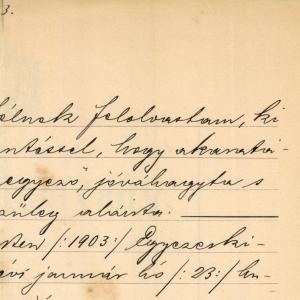 3.
félnek felolvastam, ki
ntéssel, hogy akaratá-
egyező", jóváhagyta s
aláirta.
/:1903:/ Egyezerki-
évi január hó /:23:/ hu-